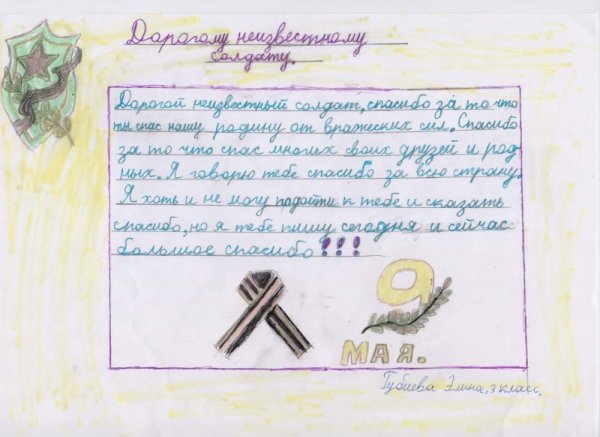 Дорогому неизвестному
солдату.
Дорогой неизвестный солдат, спасибо за то что
ты спас нашу родину от вражеских сил. Спасибо
за то что спас многех своих друзей и род
ных. Я говорю тебе спасибо за всю страну.
Я хоть и не могу подойти к тебе и сказать
спасибо, но я тебе пишу сегодня и сейчас
большое спасибо!!!
9
МАЯ.
Губиева Элина, 3 класс.